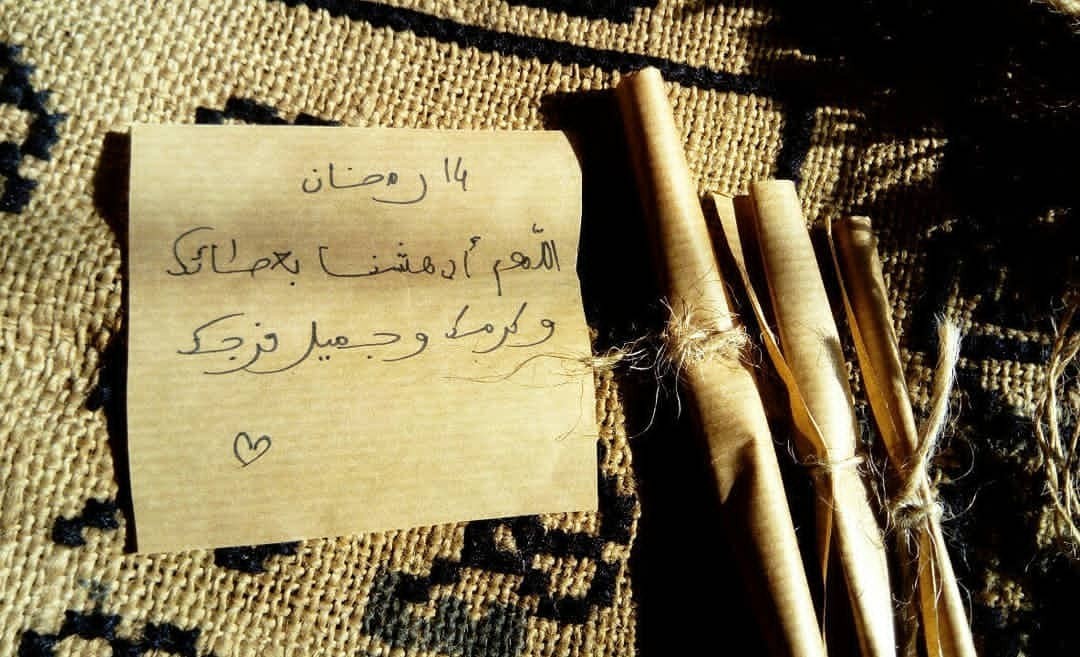 14 رمضان
اللّهم أدهشنا بعطائك
وكرمك وجميل فرجك